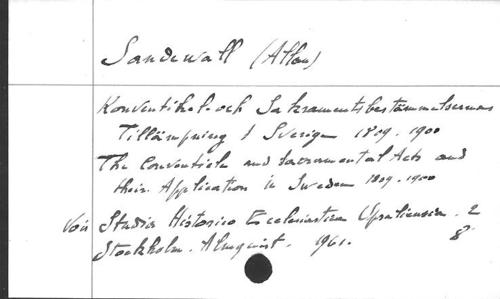 Sandewall (Allan)
Konventikel- och Sakramentsbestämmelsernas
Tillämpning i Sverige 1809-1900
The Conventicle and Sacramental Acts and
their Application in Sweden 1809-1900
Voir Studia Historico Ecclesiastica Upsaliensia. 2
Stockholm. Almqvist. 1961. 8°